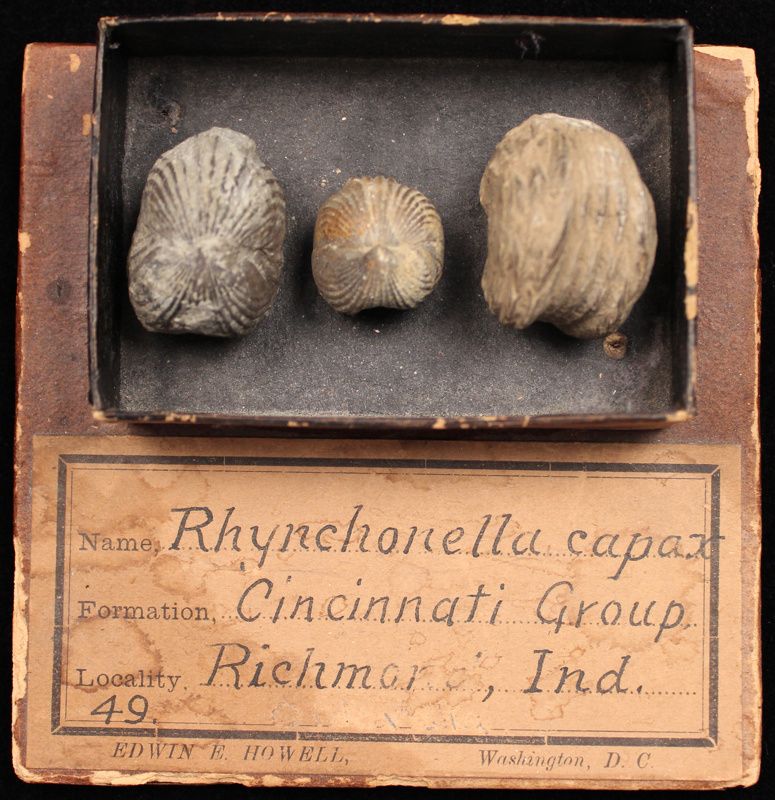 Name, Rhynchonella capax
Formation, Cincinnati Group
Locality, Richmond, Ind.
49.
EDWIN E. HOWELL, Washington, D. C.